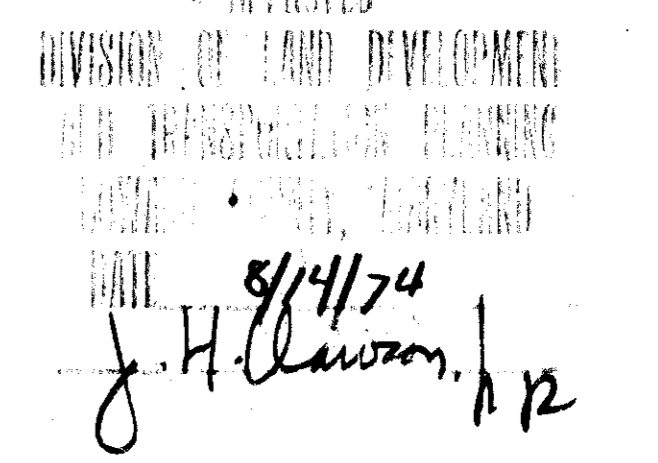 APPROVED
DIVISION OF LAND DEVELOPMENT
AND TRANSPORTATION PLANNING
HOWARD COUNTY, MARYLAND
DATE 8/14/74
J. H. Clawson,